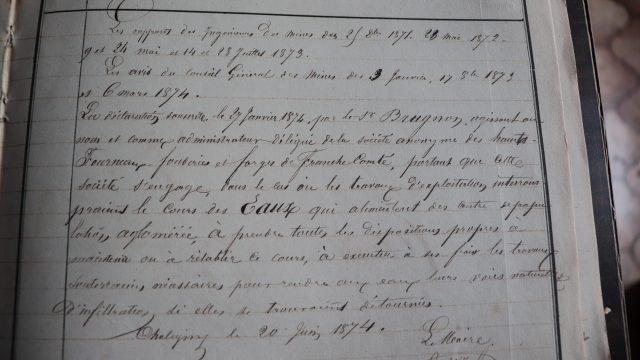 Les rapports des Ingénieurs des mines des 25 8bre 1871. 28 mai 1872.
9 et 24 mai et 14 et 28 Juillet 1873.
Les avis du Conseil Général des Mines des 3 Janvier, 17 8bre 1873
et 6 mars 1874.
La déclaration souscrite le 29 Janvier 1874, par le Sr Brugnon, agissant au
nom et comme administrateur délégué de la société anonyme des hauts-
Fourneaux fonderies et forges de Franche Comté, portant que cette
société s'engage, dans le cas où les travaux d'exploitation interrom
praient le cours des Eaux qui alimentent des centre de popu
lation aglomérée, à prendre toutes les dispositions propres à
maintenir ou à rétablir ce cours, à exécuter à ses frais les travaux
souterrains nécessaires pour rendre aux eaux leurs voies naturelles
d'infiltration, si elles se trouvaient détournées.
Chaligny le 20 Juin 1874.
Le Maire